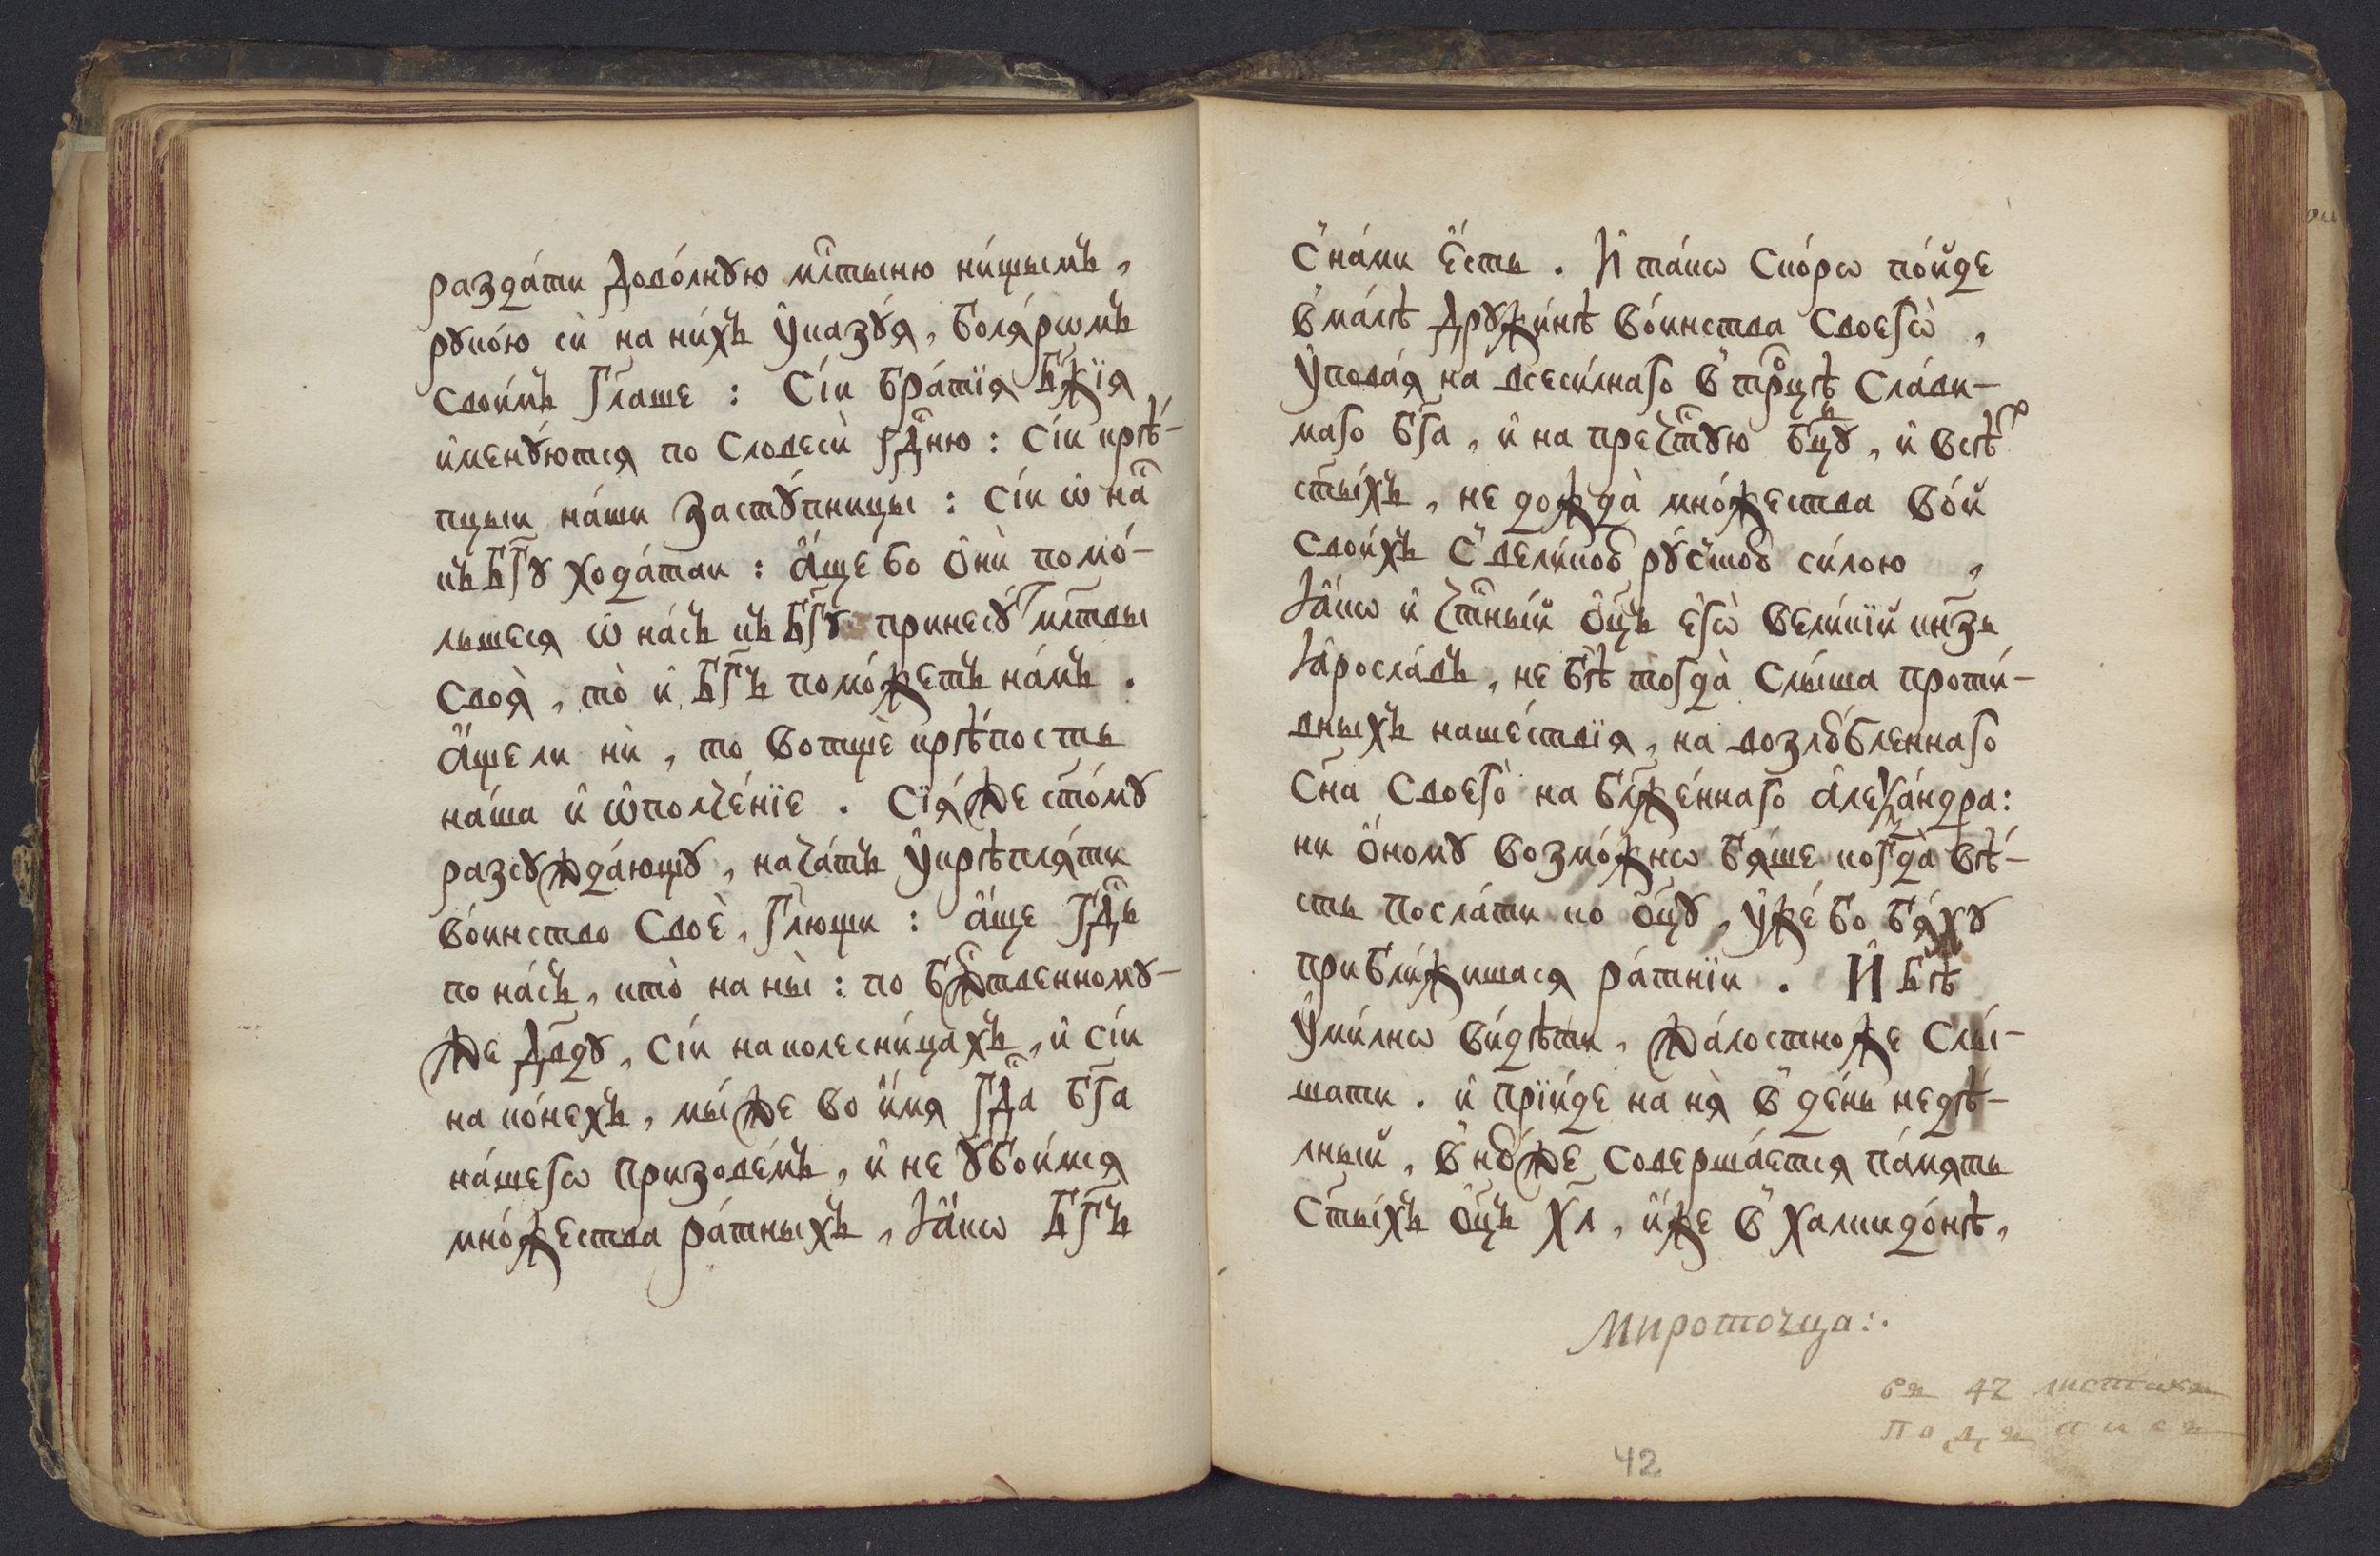 раздати доволнꙋю млⷭ҇тыню нищымъ,
рꙋкою си на нихъ ᲂуказꙋѧ, болѧрѡмъ
своимъ гл҃аше : Сіи братїѧ бж҃їѧ
именꙋютсѧ по словеси гдⷭ҇ню : сіи крѣ-
пцыи наши застꙋпницы : сіи ѡ наⷭ҇
къ бг҃ꙋ ходатаи : аще бо они помо-
лѧшесѧ ѡ насъ къ бг҃ꙋ принесꙋⷮ млт҃вы
своѧ, то и бг҃ъ поможетъ намъ .
аще ли ни, то вотще крѣпость
наша и ѡполченїе . Сїѧ же ст҃омꙋ
разсꙋждающꙋ, начатъ ᲂукрѣплѧти
воинство свое, гл҃ющи : аще гдⷭ҇ь
по насъ, кто на ны : по бжⷭ҇твенномꙋ-
же дв҃дꙋ, сіи на колесницахъ, и сіи
на конехъ, мы же во имѧ гдⷭ҇а бг҃а
нашегѡ призовемъ, и не ꙋбоимсѧ
множества ратныхъ, ꙗкѡ бг҃ъ
с нами есть . И такѡ скорѡ пойде
в малѣ дрꙋжинѣ воинства своегѡ,
ᲂуповаѧ на всесилнаго в трⷪ҇цѣ слави-
маго бг҃а, и на пречтⷭ҇ꙋю бцⷣꙋ, и всѣⷯ
ст҃ыхъ, не дожда множества вой
своихъ с великоѵ рꙋсткоѵ силою,
ꙗкѡ и чтⷭ҇ный оц҃ъ егѡ великїй кнз҃ь
ꙗрославъ, не бѣ тогда слыша проти-
вныхъ нашествїѧ, на возлюбленнаго
сн҃а своего на блж҃еннаго алеѯандра:
ни ономꙋ возможнѡ бѧше когда вѣ-
сть послати ко оц҃ꙋ, ᲂуже бо бѧхꙋ
приближишасѧ ратнїи . И бѣ
ᲂумилнѡ видѣти, жалостно же слы-
шати . и прїиде на нѧ в день недѣ-
лный, в оньже совершаетсѧ память
ст҃ыхъ оц҃ъ хл҃, иже в халкидонѣ,
Мироточца:.
въ 42 листахъ
подъписи
42